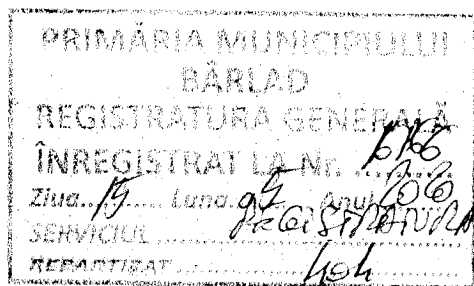 PRIMĂRIA MUNICIPIULUI
BÂRLAD
REGISTRATURA GENERALĂ
ÎNREGISTRAT LA Nr. ........
Ziua........ Luna........ Anul
SERVICIUL ........ REGISTRATURA
REPARTIZAT ........